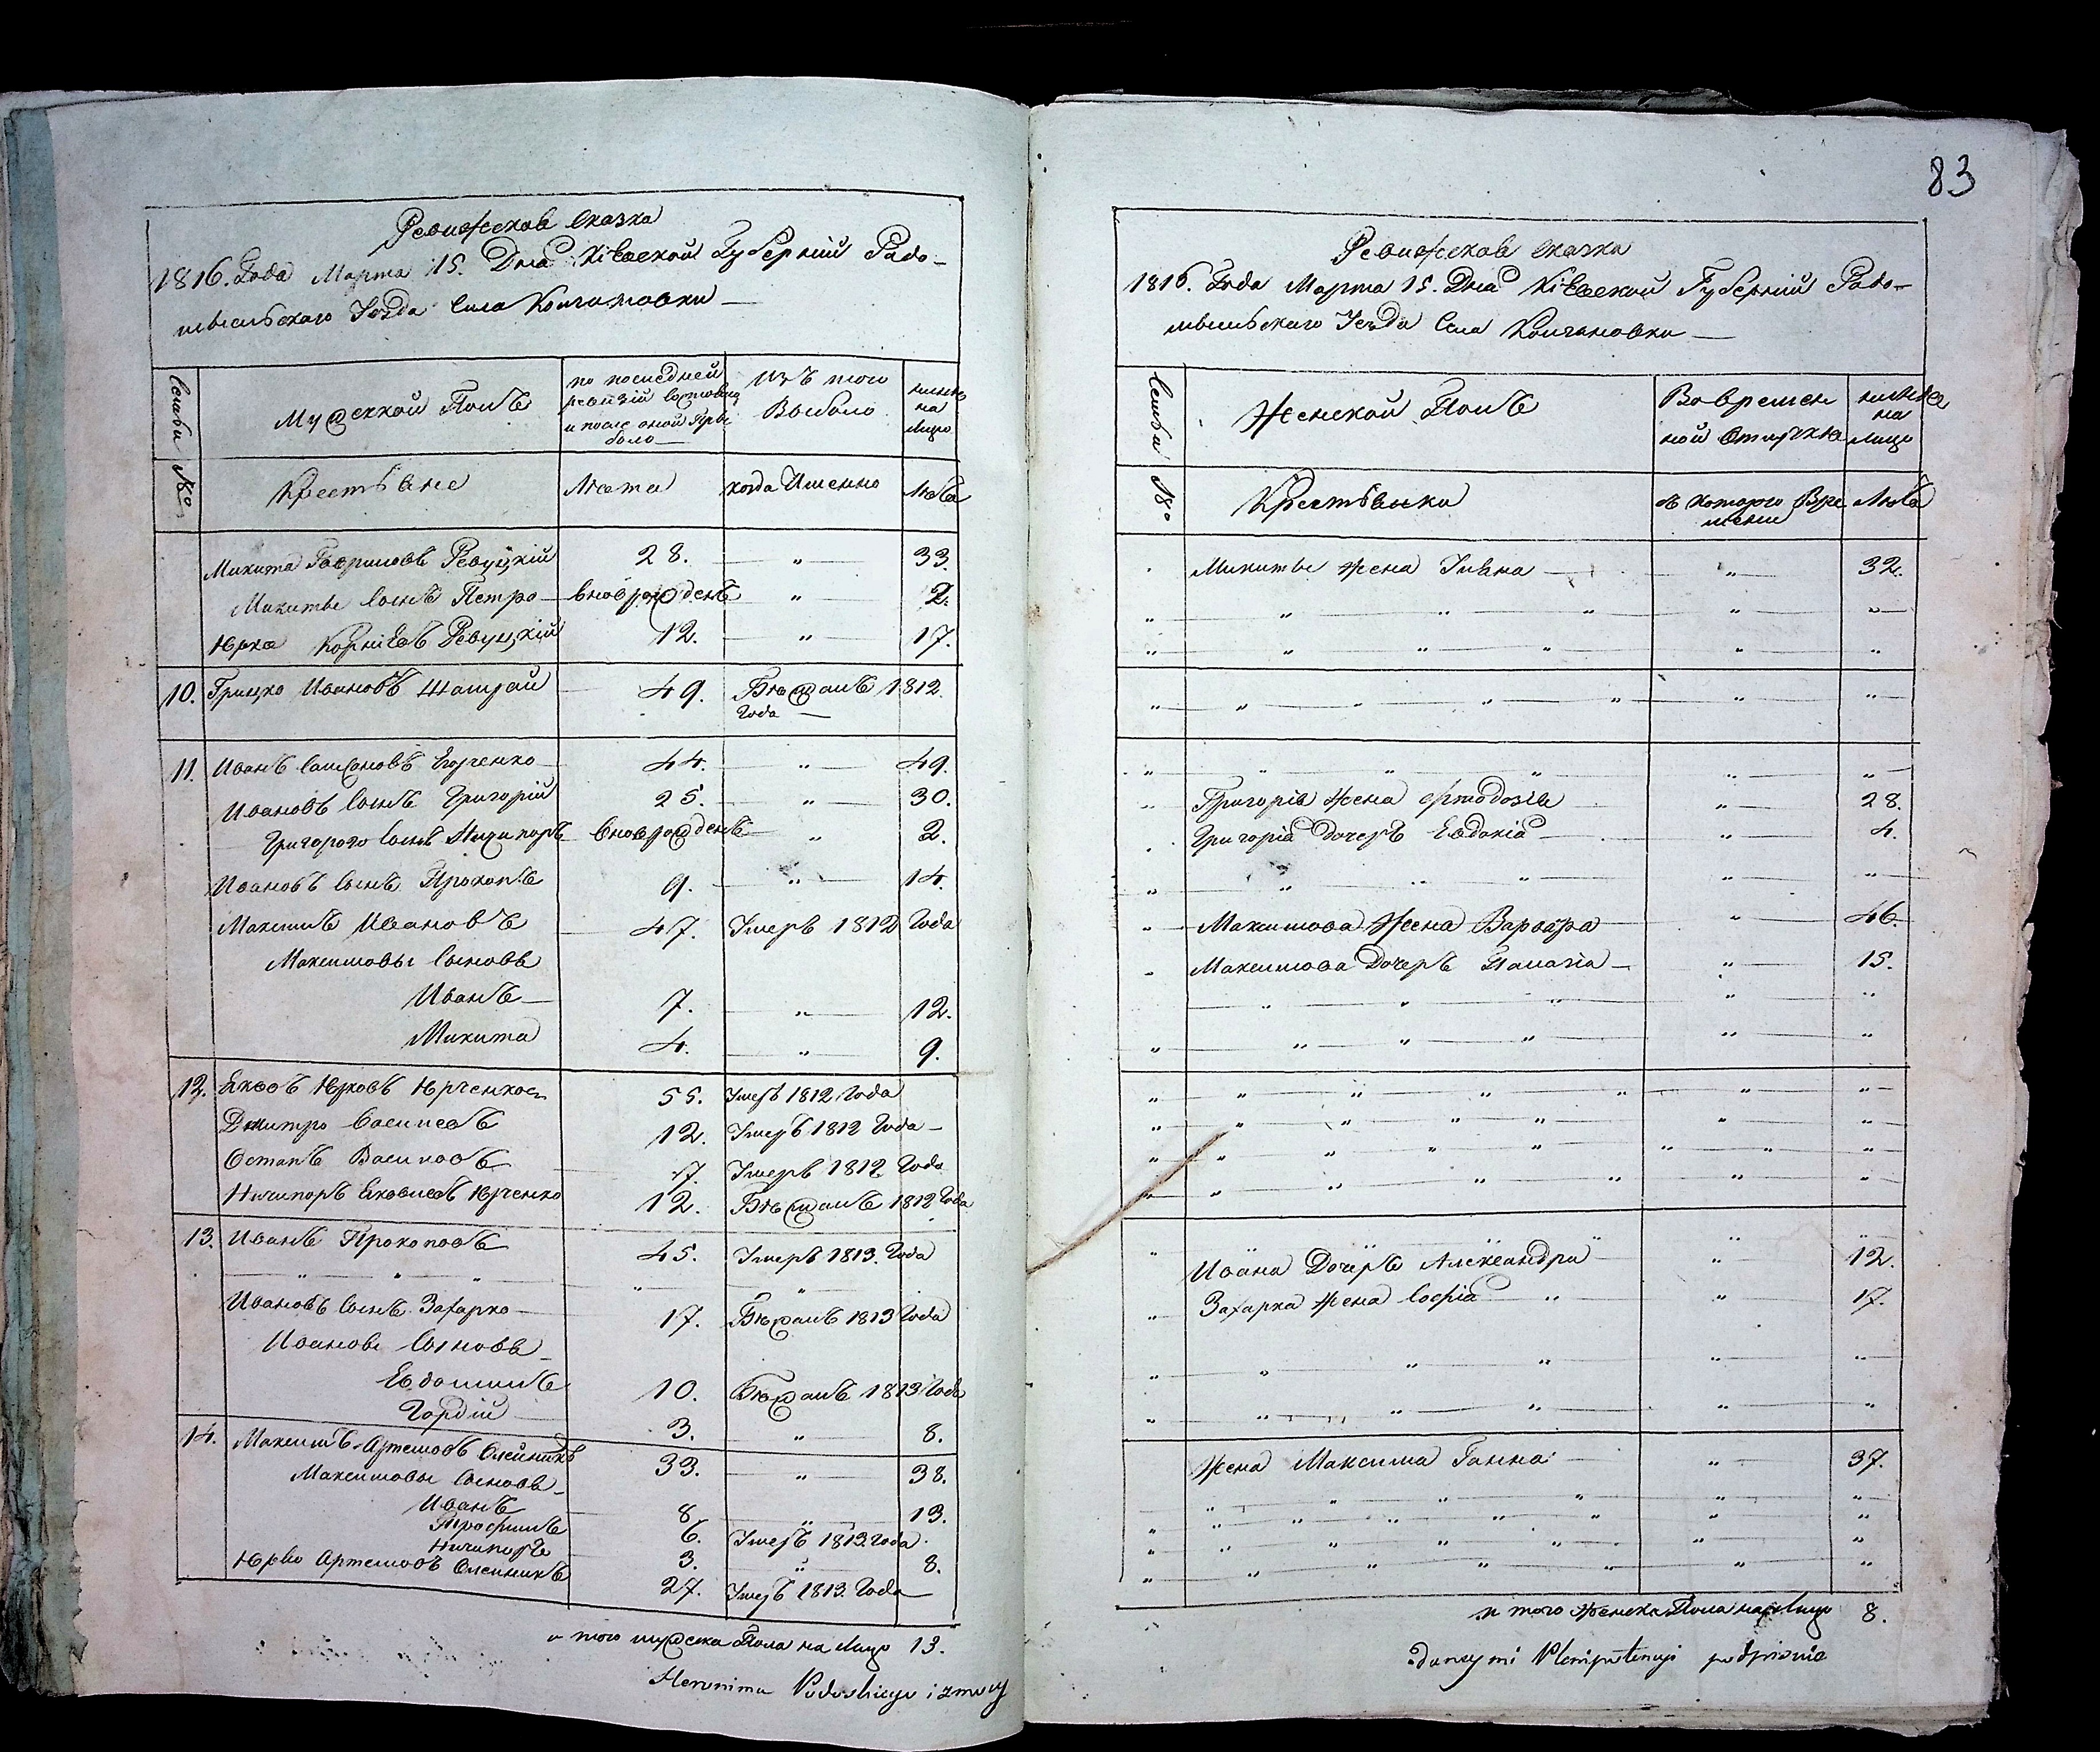 Ревижская сказка
1816. Года Марта 15. Дня Кіевской Губерній Радо-
мысльскаго Уезда Села Колгановки
Семьи №
Мужеской Полъ
по последней
ревизій состояло
и после оной Прбы
было
Изъ того
Выбыло
ныне
на
лицо
Крестьяне
Лета
когда Именно
Лета
Микита Гавриловъ Ревуцкій 28. " 33.
Микиты Сынъ Петро вновърожденъ " 2.
Юрко Корніевъ Ревуцкій 12. " 17.
10. Грицко Ивановъ 49. Бежалъ 1812.
Года
11. Иванъ Самсоновъ 44. " 49.
Ивановъ Сынъ Григорій 25. " 30.
Григорого Сынъ Ничипоръ вноврожденъ " 2.
Ивановъ Сынъ Прокопъ 9. " 14.
Максимъ Ивановъ 47. Умеръ 1812 Года
Максимовы Сыновя
Иванъ 7. " 12.
Микита 4. " 9.
12. Яковъ Юрковъ Юрченко 55. Умеръ 1812 Года
Дмитро Василевъ 12. Умеръ 1812 Года
Остапъ Василовъ 7. Умеръ 1812 Года
Ничипоръ Яковлевъ Юрченко 12. Бежалъ 1812 Года
13. Иванъ Прокоповъ 45. Умеръ 1813. Года
" " " " "
Ивановъ Сынъ Захарко 17. Бежалъ 1813 Года
Ивановы Сыновя
Евдокимъ 10. Бежалъ 1813 Года
Гордій 3. " 8.
14. Максимъ Артемовъ Олейникъ 33. " 38.
Максимовы Сыновя
Иванъ 8. " 13.
Трофимъ 6. Умеръ 1813 Года
Ничипоръ 3. " 8.
Юрко Артемовъ Олейникъ 27. Умеръ 1813. Года
и того мужеска Пола на лицо 13.
Heronima Podoskiego i z mocy
83
Ревижская сказка
1816. Года Марта 15. Дня Кіевской Губерній Радо-
мысльскаго Уезда Села Колгановки
Семьи №
Женской Полъ
Вовремен
ной Отлучке
ныне
на
лицо
Крестьянки
съ которого Вре
мени
Лета
Микиты Жена Уляна " 32.
" " " " " "
" " " " " "
" " " " " " "
" " " " " "
" Григорія Жена " 28.
Григорія Дочеръ Евдокія " 4.
" " " " " "
" Максимова Жена Варвара " 46.
" Максимова Дочеръ Палазіа " 15.
" " " " "
" " " " " "
" " " " " " "
" " " " " " "
" " " " " " " "
" " " " " " "
" " " " " "
Ивана Дочеръ Александра " 12.
" Захарка Жена Софіа " " 17.
" " " " " "
" " " " " " "
Жена Максима Ганна " 37.
" " " " " "
" " " " " " " "
" " " " " " "
" " " " " "
и того Женска Пола на Лицо 8.
danej mi Plenipotencyi podpisuie